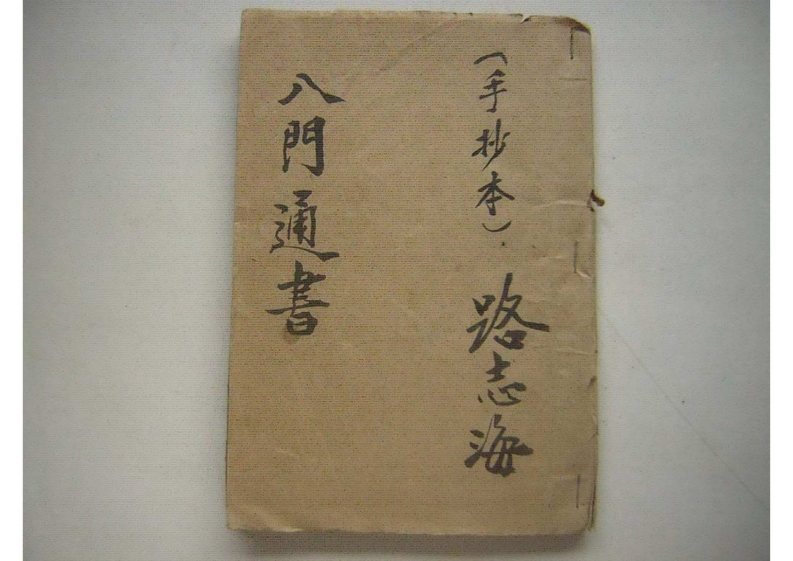 （手抄本）.路志海
八門通書